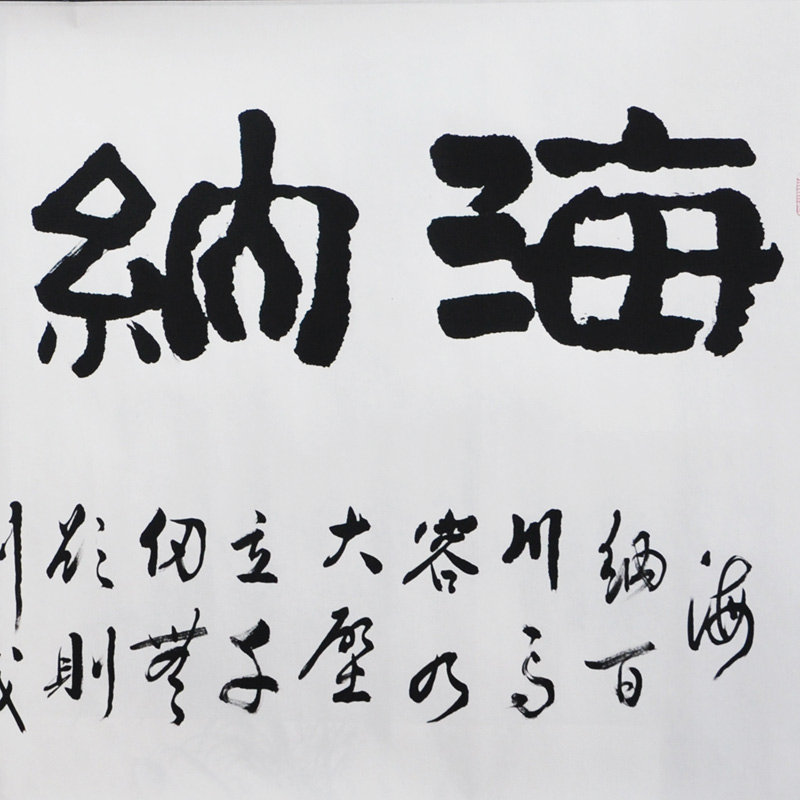 海納
海
納百
川有
容乃
大壁
立千
仞無
欲則